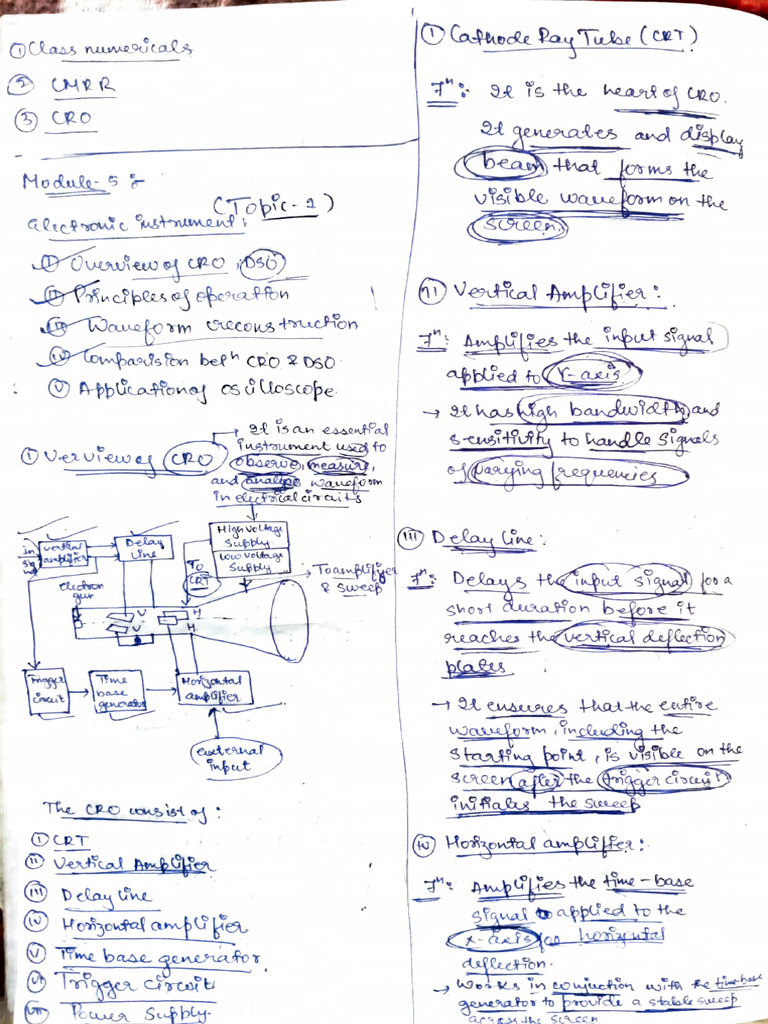 ① Class numericals
② CMRR
③ CRO
Module-5 :-
(Topic-1)
Electronic instrument:
① Overview of CRO, DSO
② Principles of operation
③ Waveform reconstruction
④ Comparision betn CRO & DSO
⑤ Application of oscilloscope
① Verview of CRO
→ It is an essential
instrument used to
observe, measure,
and analyse waveform
in electrical circuits
vertical
amplifier
Delay
line
High voltage
supply
Low voltage
supply
To
CRT
To amplifier
& sweep
electron
gun
V
V
H
H
Trigger
circuit
Time
base
generator
Horizontal
amplifier
external
input
The CRO consist of :
① CRT
② Vertical Amplifier
③ Delay line
④ Horizontal amplifier
⑤ Time base generator
⑥ Trigger Circuit
⑦ Power Supply.
① Cathode Ray Tube (CRT)
Fn:- It is the heart of CRO.
It generates and display
beam that forms the
visible waveform on the
screen.
② Vertical Amplifier :
Fn:- Amplifies the input signal
applied to Y-axis
→ It has high bandwidth and
sensitivity to handle signals
of varying frequencies
③ Delay line :
Fn:- Delays the input signal for a
short duration before it
reaches the vertical deflection
plates
→ It ensures that the entire
waveform, including the
starting point, is visible on the
screen after the trigger circuit
initiates the sweep
④ Horizontal amplifier :
Fn:- Amplifies the time-base
signal applied to the
x-axis for horizontal
deflection.
→ Works in conjuction with the time base
generator to provide a stable sweep
across the screen